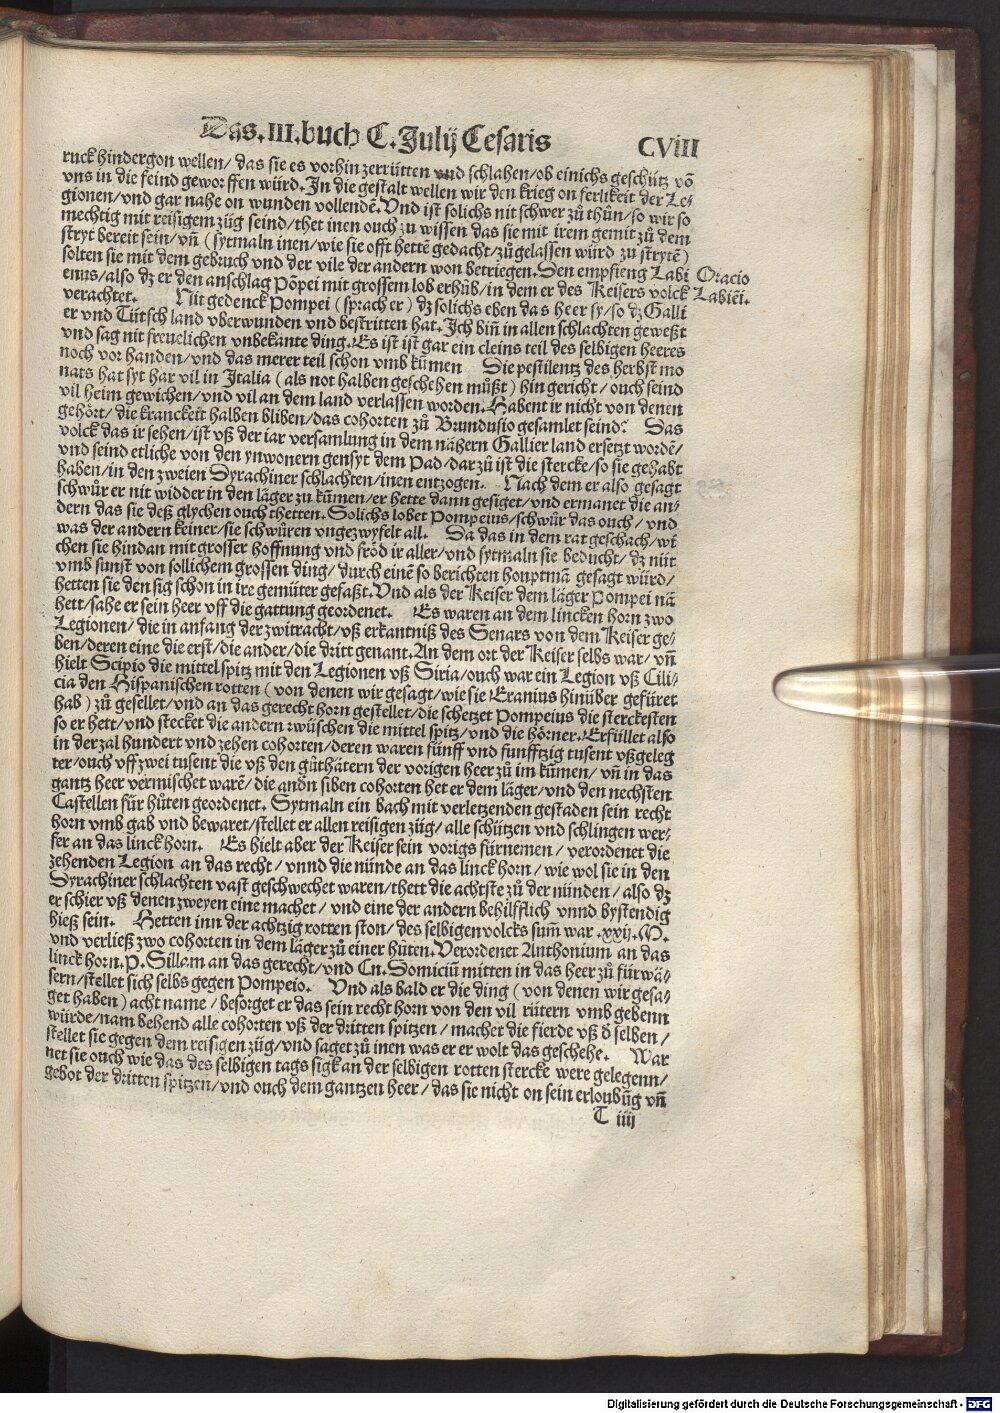 Das.III.buch C.Julij Cesaris CVIII
ruck hindergon wellen/ das sie es vorhin zerrütten vnd schlahen/ob einichs geschütz võ
vns in die feind geworffen würd. In die gestalt wellen wir den krieg on ferlikeit der Le⸗
gionen/vnd gar nahe on wunden vollendē. Vnd ist solichs nit schwer zů thůn/so wir so
mechtig mit reisigem züg seind/thet inen ouch zu wissen das sie mit irem gemit zů dem
stryt bereit sein/vñ (sytmaln inen/wie sie offt hettē gedacht/zůgelassen würd zu strytē)
solten sie mit dem gebruch vnd der vile der andern won betriegen. Den empfieng Labi
Oracio
enus/also dz er den anschlag Põpei mit grossem lob erhůb/in dem er des Keisers volck
Labiēi.
verachtet. Nit gedenck Pompei (sprach er) dz solichs eben das heer sy/so dz Galli
er vnd Tütsch land vberwunden vnd bestritten hat. Ich biñ in allen schlachten geweßt
vnd sag nit freuelichen vnbekante ding. Es ist ist gar ein cleins teil des selbigen heeres
noch vor handen/vnd das merer teil schon vmb kūmen Die pestilentz des herbst mo
nats hat syt har vil in Italia (als not halben geschehen můßt) hin gericht/ouch seind
vil heim gewichen/vnd vil an dem land verlassen worden. Habent ir nicht von denen
gehört/die kranckeit halben bliben/das cohorten zů Brundusio gesamlet seind? Das
volck das ir sehen/ist vß der iar versamlung in dem nähern Gallier land ersetzt wordē/
vnd seind etliche von den ynwonern gensyt dem Pad/dar zů ist die stercke/so sie gehabt
haben/in den zweien Dyrachiner schlachten/inen entzogen. Nach dem er also gesagt
schwůr er nit widder in den läger zu kūmen/er hette dann gesiget/vnd ermanet die an⸗
dern das sie deß glychen ouch thetten. Solichs lobet Pompeius/schwůr das ouch/vnd
was der andern keiner/sie schwůren vngezwyfelt all. Da das in dem rat geschach/wi
chen sie hindan mit grosser hoffnung vnd fröd ir aller/vnd sytmaln sie beducht/dz nüt
vmb sunst von sollichem grossen ding/durch einē so berichten houptmā gesagt würd/
hetten sie den sig schon in ire gemüter gefaßt. Vnd als der Keiser dem läger Pompei nā
hett/sahe er sein heer vff die gattung geordenet. Es waren an dem lincken horn zwo
Legionen/die in anfang der zwitracht/vß erkantniß des Senats von dem Keiser ge⸗
ben/deren eine die erst/die ander/die dritt genant. An dem ort der Keiser selbs war/vñ
hielt Scipio die mittel spitz mit den Legionen vß Siria/ouch war ein Legion vß Cili⸗
cia den Hispanischen rotten (von denen wir gesagt/wie sie Eranius hinüber gefüret
hab) zů gesellet/vnd an das gerecht horn gestellet/die schetzet Pompeius die stercksten
so er hett/vnd stecket die andern zwüschen die mittel spitz/vnd die hörner. Erfüllet also
in der zal hundert vnd zehen cohorten/deren waren fünff vnd funfftzig tusent vßgeleg
ter/ouch vff zwei tusent die vß den gůthätern der vorigen heer zů im kūmen/vñ in das
gantz heer vermischet warē/die andn siben cohorten het er dem läger/vnd den nechsten
Castellen für hůten geordenet. Sytmaln ein bach mit verletzenden gestaden sein recht
horn vmb gab vnd bewaret/stellet er allen reisigen züg/alle schützen vnd schlingen wer⸗
fer an das linck horn. Es hielt aber der Keiser sein vorigs fürnemen/verordenet die
zehenden Legion an das recht/vnnd die nünde an das linck horn/wie wol sie in den
Dyrachiner schlachten vast geschwechet waren/thett die achtste zů der nünden/also dz
er schier vß denen zweyen eine machet/vnd eine der andern behilfflich vnnd bystendig
hieß sein. Hetten inn der achtzig rotten ston/des selbigen volcks sum̄ war .xxij.M.
vnd verließ zwo cohorten in dem läger zů einer hůten. Verordenet Anthonium an das
linck horn. P. Sillam an das gerecht/vnd Cn. Domiciū mitten in das heer zů fürwä⸗
sern/stellet sich selbs gegen Pompeio. Vnd als bald er die ding (von denen wir gesa⸗
get haben) acht name/besorget er das sein recht horn von den vil rütern vmb gebenn
würde/nam behend alle cohorten vß der dritten spitzen/machet die fierde vß ď selben/
stellet sie gegen dem reisigen züg/vnd saget zů inen was er er wolt das geschehe. War
net sie ouch wie das des selbigen tags sigk an der selbigen rotten stercke were gelegenn/
gebot der dritten spitzen/vnd ouch dem gantzen heer/das sie nicht on sein erloubūg vñ
T iiij
Digitalisierung gefördert durch die Deutsche Forschungsgemeinschaft - DFG